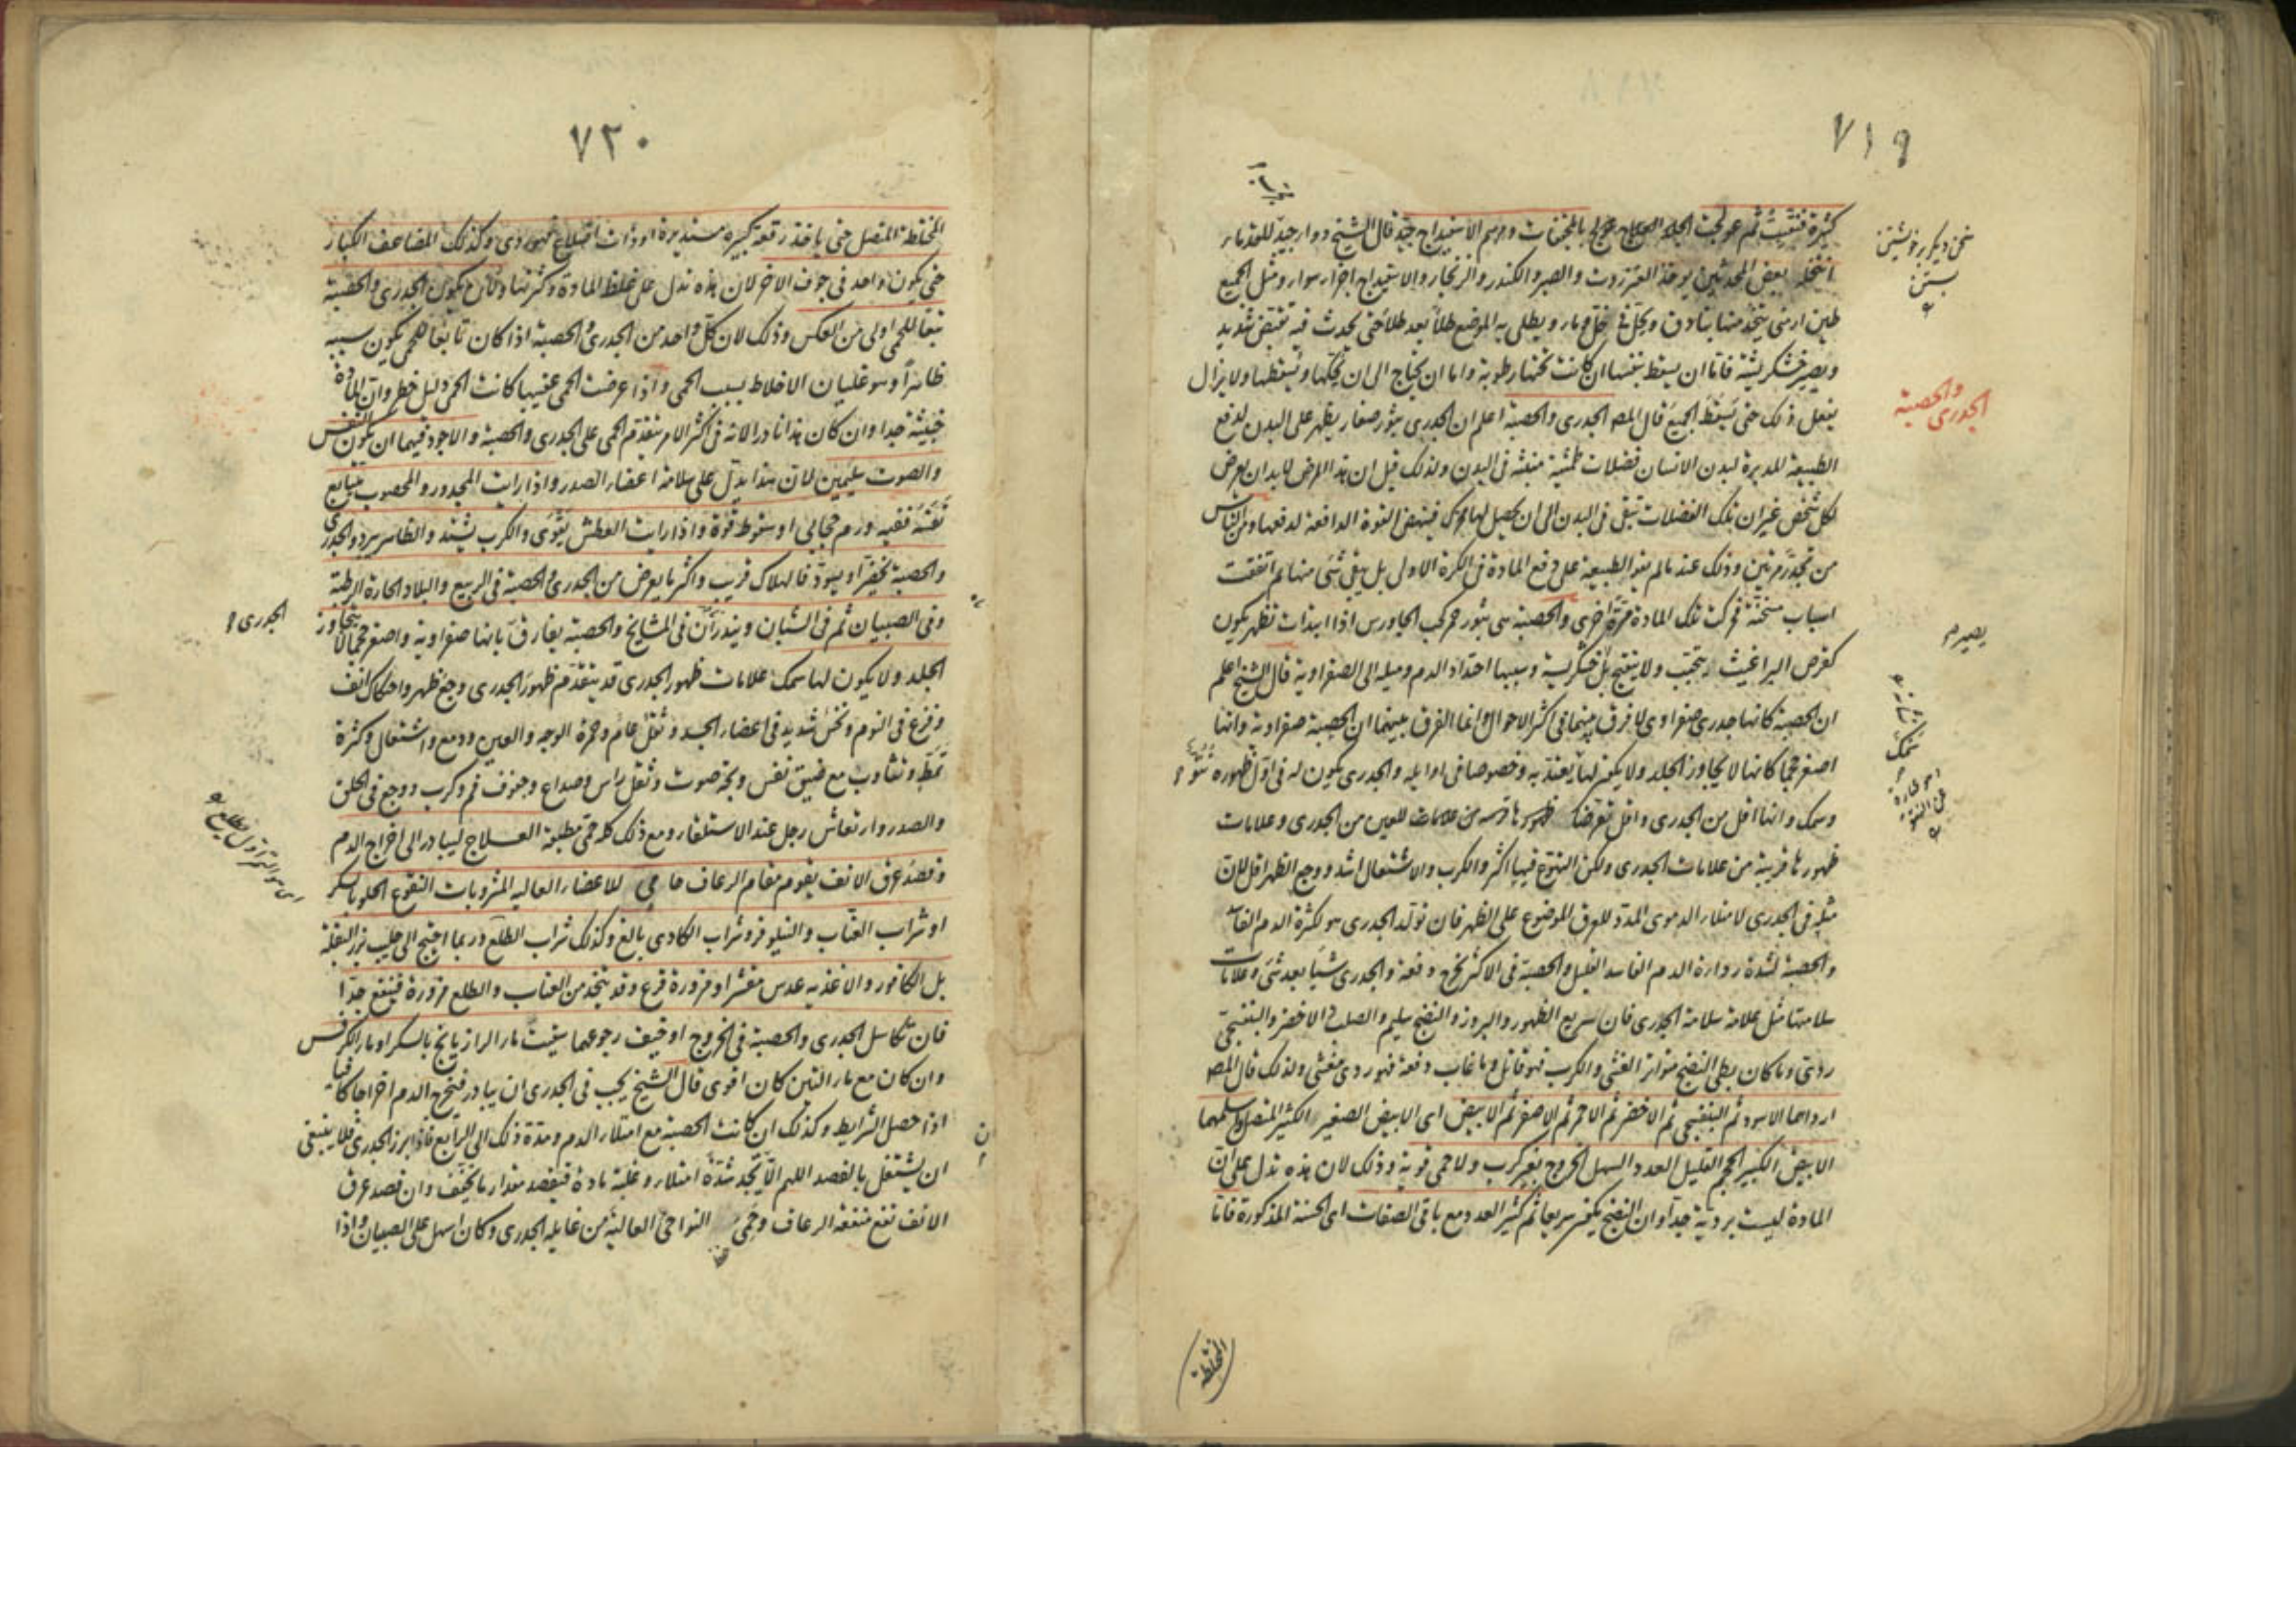 ٧١٩
كثيرة فتقيت ثم عولجت الجلد بالمجففات ومرهم الاسفيداج جيد قال الشيخ دواء جيد للخنازير
انتخله بعض المحدثين يوخذ العنزروت والصبر والكندر والزنجار والاسفيداج اجزاء سواء ومثل الجميع
طين ارمنى يتخذ منها بنادق ويحل فى خل وماء ويطلى به الموضع طلاء بعد طلاء حتى يحدث فيه تقبض شديد
ويصير خشكريشة فاما ان يسقط بنفسها ان كانت تحتها رطوبة واما ان تحتاج الى ان تحكها وتسقطها ولا يزال
يفعل ذلك حتى يسقط الجميع قال المص الجدرى والحصبة اعلم ان الجدرى بثور صغار يظهر على البدن لدفع
الطبيعة المدبرة لبدن الانسان فضلات طمثية منبثة فى البدن ولذلك قيل ان هذا المرض لابد ان يعرض
لكل شخص غير ان تلك الفضلات تبقى فى البدن الى ان يحصل لها محرك فينهض القوة الدافعة لدفعها ومن الناس
من تجدر مرتين وذلك عند ما لم يقو الطبيعة على دفع المادة فى الكرة الاولى بل يبقى شئ منها ثم اتفقت
اسباب مسخنة حركت تلك المادة مرة اخرى والحصبة هى بثور حمر كحب الجاورس اذا ابتدات تظهر يكون
كقرص البراغيث ثم يتحبب ولا يتقيح بل خشكريشة وسببها احتداد الدم وميله الى الصفراوية قال الشيخ اعلم
ان الحصبة كانها جدرى صفراوى لا فرق بينهما فى اكثر الاحوال وانما الفرق بينهما ان الحصبة صفراوية وانها
اصغر حجما كانها لا يجاوز الجلد ولا يكون لها سمك يعتد به وخصوصا فى اوايله والجدرى يكون له فى اول ظهوره نتوء
وسمك وانها اقل من الجدرى واقل تعرضا للعين من الجدرى وعلامات
ظهورها قريبة من علامات الجدرى ولكن التهوع فيها اكثر والكرب والاشتعال اشد ووجع الظهر اقل لان
ميله فى الجدرى لامتلاء الدموى الممدد للعرق الموضوع على الظهر فان تولد الجدرى هو لكثرة الدم الفاسد
والحصبة لشدة رداءة الدم الفاسد القليل والحصبة فى الاكثر تخرج دفعة والجدرى شيئا بعد شئ وعلامات
سلامتها مثل علامة سلامة الجدرى فان سريع الظهور والبروز والنضج سليم والصلب الاخضر والبنفسجى
ردى وما كان بطى النضج متواتر الغشى والكرب فهو قاتل وما غاب دفعة فهو ردى مغشى ولذلك قال المص
ارداهما الاسود ثم البنفسجى ثم الاخضر ثم الاحمر ثم الاصفر ثم الابيض اى الابيض الصغير الكثير المتصل واسلمهما
الابيض الكبير الحجم القليل العدد السهل الخروج بغير كرب ولا حمى قوية وذلك لان هذه تدل على ان
المادة ليست بردية جدا وان النضج يكون سريعا ثم كثير العدد مع باقى الصفات اى الحسنة المذكورة فاما
والحصبة
الجدرى
يصير
المختلطة
٧٢٠
المختلطة المتصل حتى ياخذ رقعة كبيرة مستديرة او ذات اضلاع فهو ردى وكذلك المضاعف الكبار
حتى يكون واحد فى جوف الاخر لان هذه تدل على غلظ المادة وكثرتها ولان يكون الجدرى والحصبة
تبعا للحمى اولى من العكس وذلك لان كل واحد من الجدرى والحصبة اذا كان تابعا للحمى يكون سببه
ظاهرا وهو غليان الاخلاط بسبب الحمى واذا عرضت الحمى عقيبها كانت الحمى دليل خطر وان المادة
خبيثة جدا وان كان هذا نادرا لانه فى اكثر الامر يتقدم الحمى على الجدرى والحصبة والاجود فيهما ان يكون النفس
والصوت سليمين لان هذا يدل على سلامة اعضاء الصدر واذا رايت المجدور والمحصوب يتتابع
نفسه ففيه ورم حجابى او سقوط قوة واذا رايت العطش يقوى والكرب يشتد والظاهر يبرد والجدرى
والحصبة تخضر او يسود فالهلاك قريب واكثر ما يعرض من الجدرى والحصبة فى الربيع والبلاد الحارة الرطبة
وفى الصبيان ثم فى الشبان ويندران فى المشايخ والحصبة يفارق بانها صفراوية واصغر حجما لا يتجاوز
الجلد ولا يكون لها سمك علامات ظهور الجدرى قد يتقدم ظهور الجدرى وجع ظهر واحتكاك انف
وفزع فى النوم ونخس شديد فى اعضاء الجسد وثقل عام وحمرة الوجه والعين ودمع واشتعال وكثرة
تمط وتثاوب مع ضيق نفس وبحة صوت وثقل راس وصداع وجفوف فم وكرب ووجع فى الحلق
والصدر وارتعاش رجل عند الاستلقاء ومع ذلك كله حمى مطبقة العلاج ليبادر الى اخراج الدم
وفصد عرق الانف يقوم مقام الرعاف حامى للاعضاء العاليه المشروبات النقوع الحلو بالسكر
او شراب العناب والنيلوفر وشراب الكادى بالغ وكذلك شراب الطلع وربما احتيج الى حليب بزر البقلة
بل الكافور والاغذيه عدس مقشر او مزورة قرع وقد يتخذ من العناب والطلع مزورة فينفع جدا
فان تكاسل الجدرى والحصبة فى الخروج او خيف رجوعهما سقيت ماء الرازيانج بالسكر او ماء الكرفس
وان كان مع ماء التين كان اقوى قال الشيخ يجب فى الجدرى ان يبادر فيخرج الدم اخراجا كافيا
اذا حصل الشرايط وكذلك ان كانت الحصبة مع امتلاء الدم ومدة ذلك الى الرابع فاذا برز الجدرى فلا ينبغى
ان يشتغل بالفصد اللهم الا يجد شدة امتلاء وغلبة مادة فيفصد مقدار ما يخفف وان فصد عرق
الانف نفع منفعة الرعاف وحمى النواحى العالية من غايلة الجدرى وكان اسهل على الصبيان واذا
الجدرى